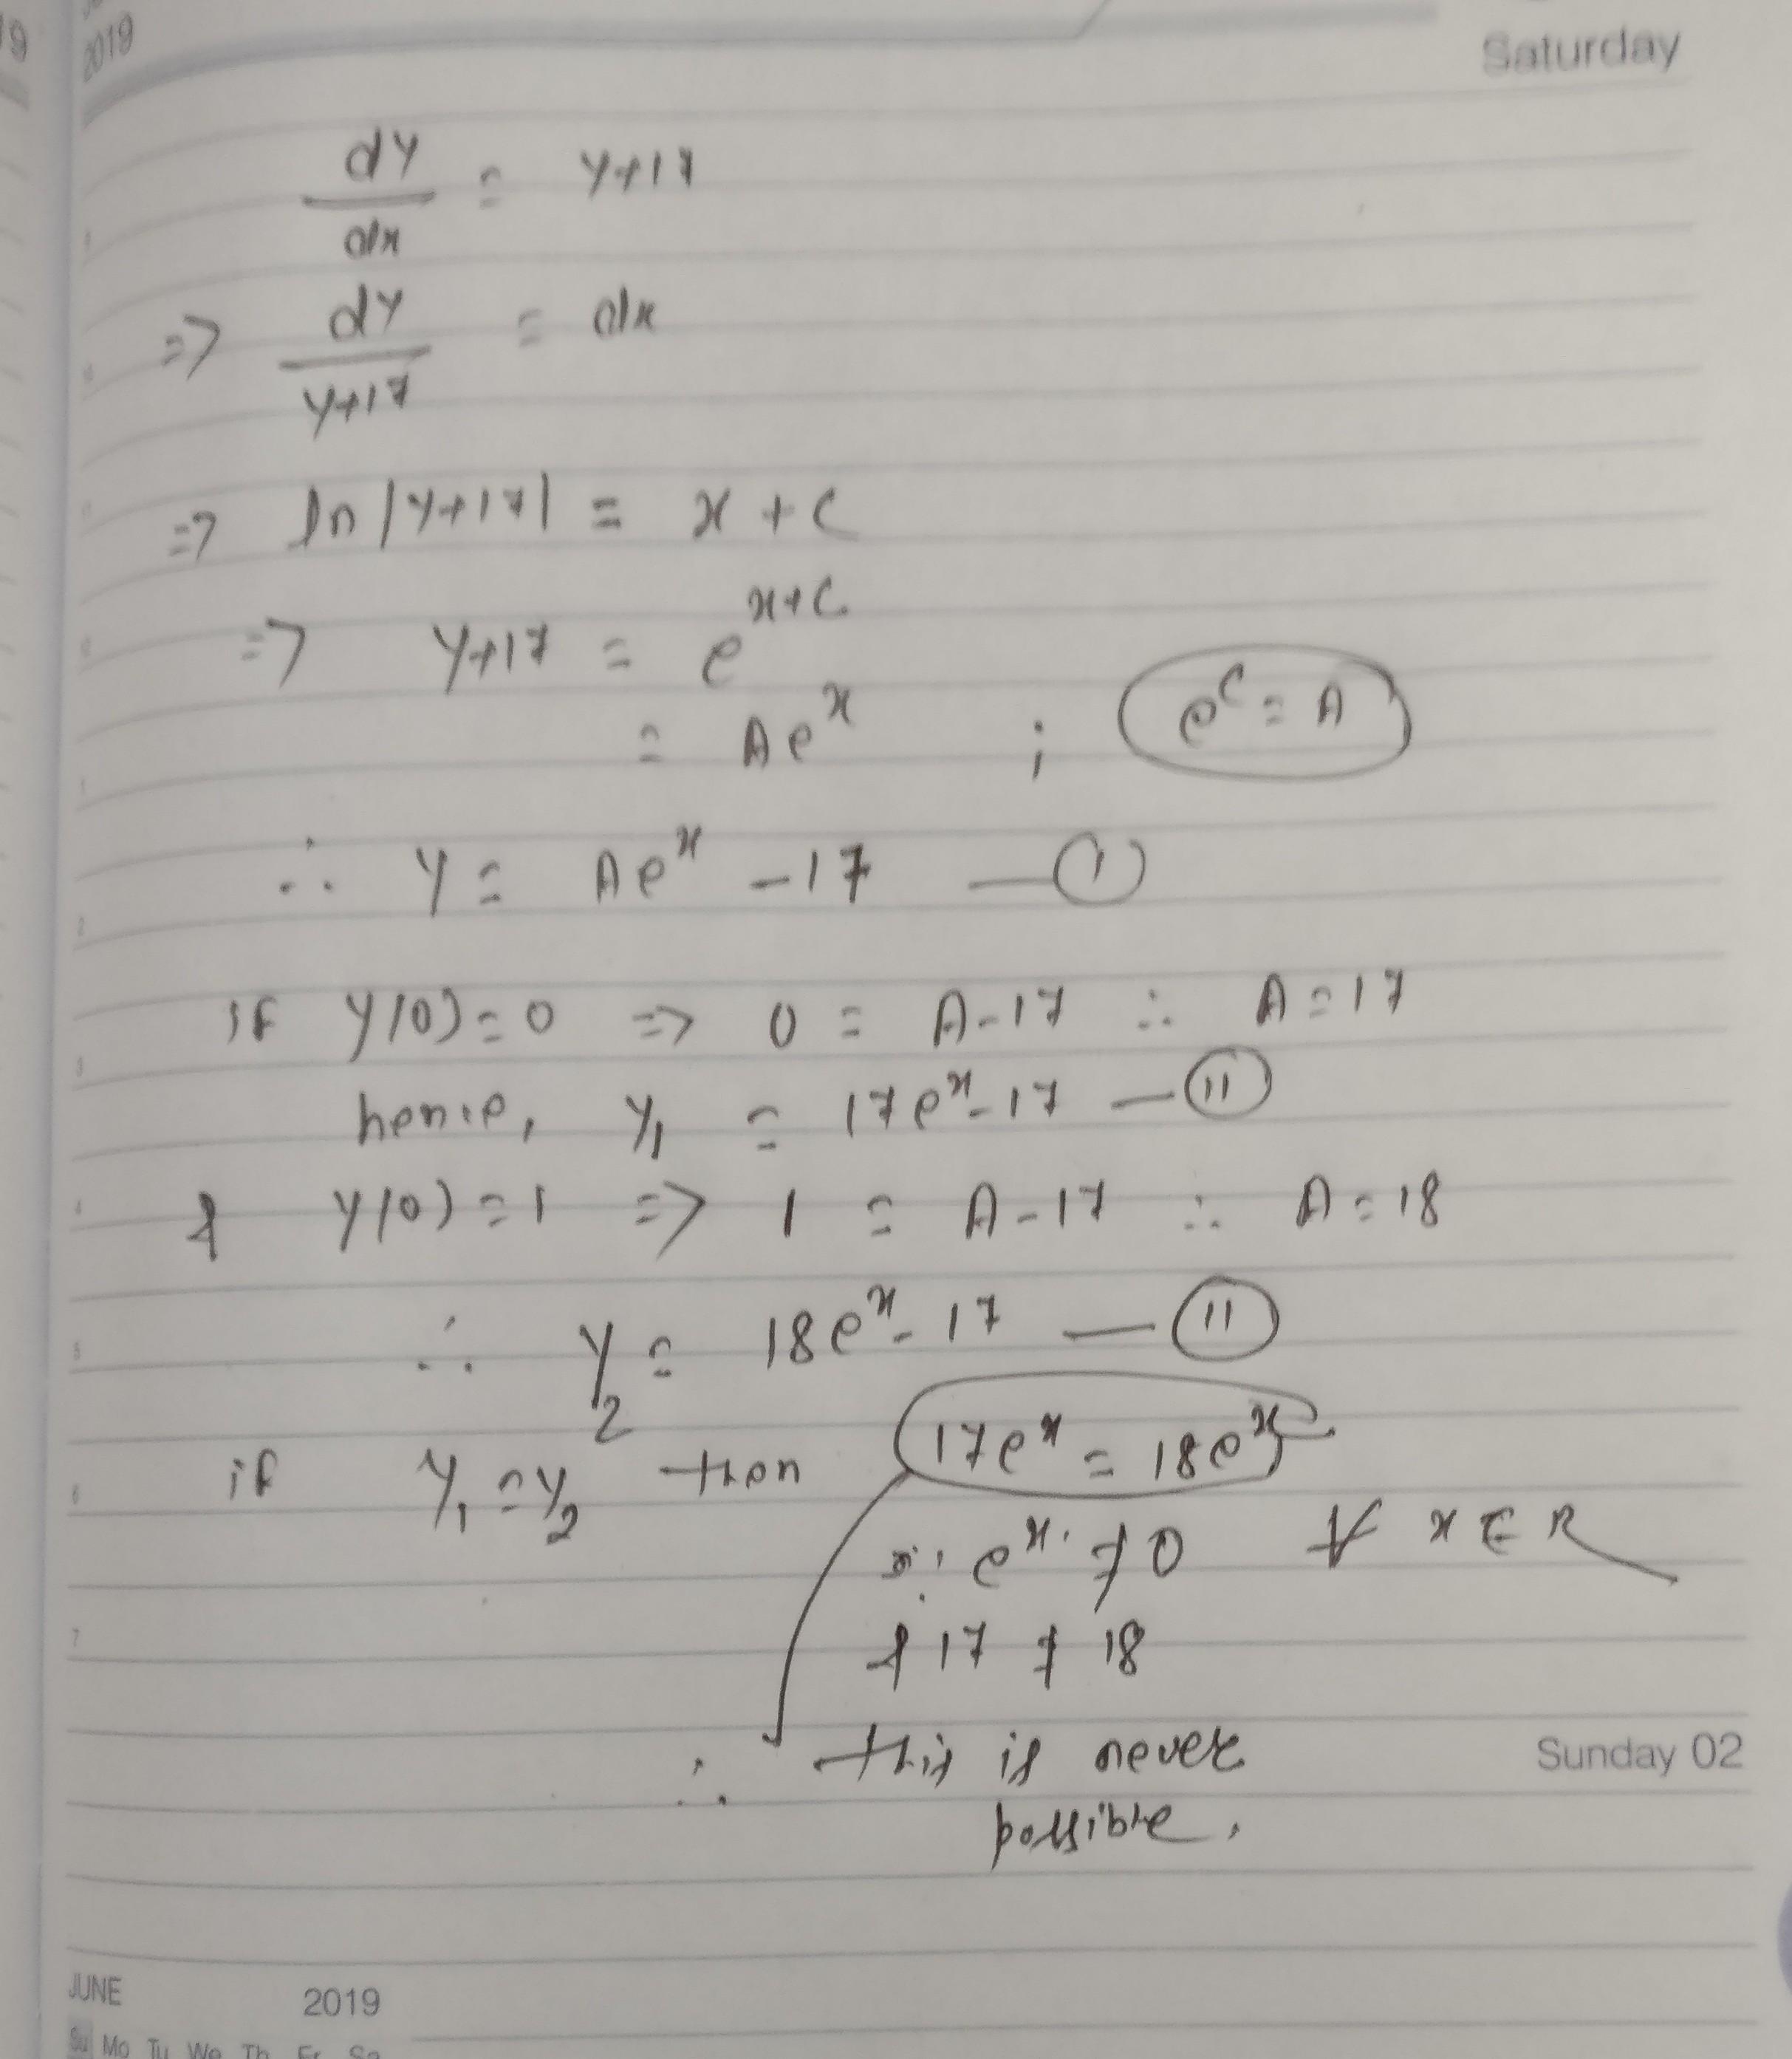 2019
Saturday
dy/dx = y+17
=> dy/y+17 = dx
=> ln |y+17| = x + c
=> y+17 = e^x+c
= Ae^x ; e^c = A
∴ y = Ae^x - 17 — (1)
if y(0)=0 => 0 = A-17 ∴ A=17
hence, y₁ = 17e^x-17 — (11)
& y(0)=1 => 1 = A-17 ∴ A=18
∴ y₂ = 18e^x-17 — (11)
if y₁=y₂ then 17e^x = 18e^x
∵ e^x ≠ 0 ∀ x ∈ R
& 17 ≠ 18
∴ this is never
possible.
Sunday 02
JUNE 2019
Su Mo Tu We Th Fr Sa